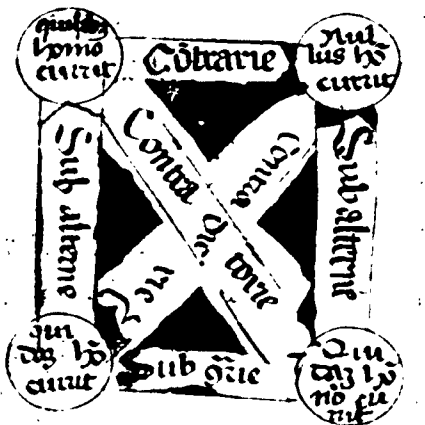 quilibet
homo
currit
Cõtrarie
Nul
lus hõ
currit
Sub alterne
Contra dic torie
Contra
rie
Sub alterne
qui
daʒ hõ
currit
Sub ↄ̃rie
Qui
daʒ hõ
nõ cu
rrit